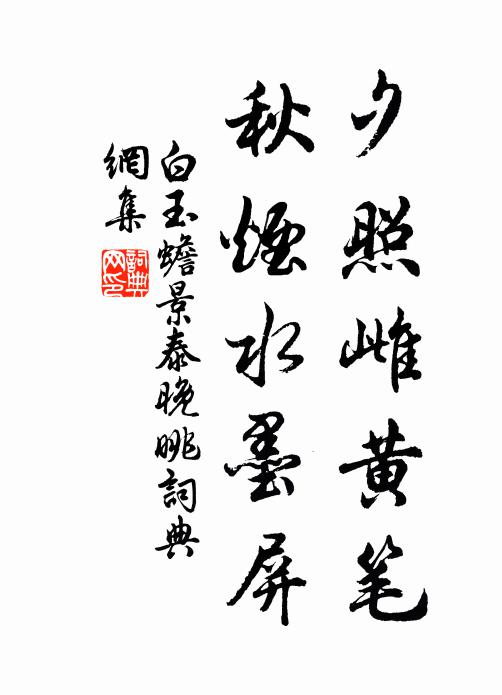 夕照雌黄笔
秋煙水墨屏
白玉蟾景泰晚眺詞典
網集
詞典
网印